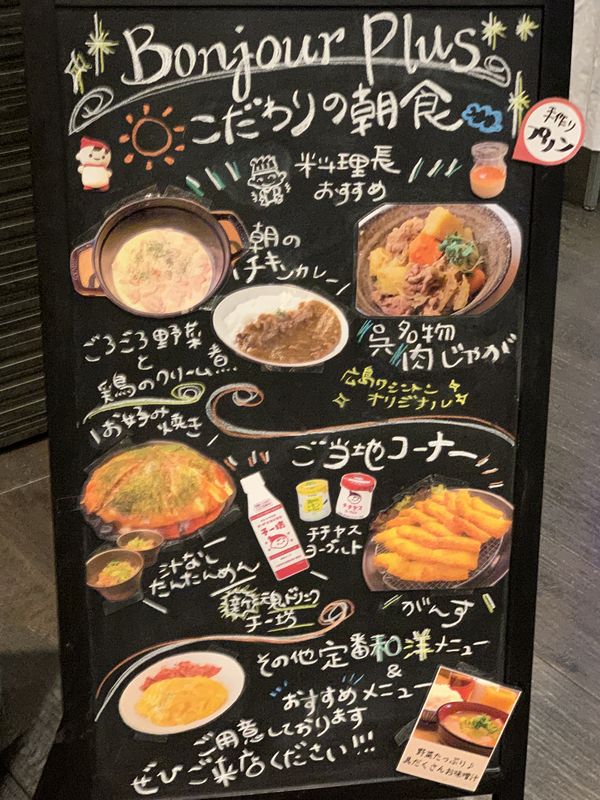 Bonjour Plus
こだわりの朝食
手作り
プリン
料理長
おすすめ
朝の
チキンカレー
ごろごろ野菜
と
鶏のクリーム煮
呉名物
肉じゃが
広島ワシントン
オリジナル
お好み焼き
ご当地コーナー
チチヤス
ヨーグルト
汁なし
たんたんめん
ドリンク
チー坊
がんす
その他定番和洋メニュー
&
おすすめメニュー
ご用意しております
ぜひご来店ください!!!
野菜たっぷり♪
具だくさんお味噌汁